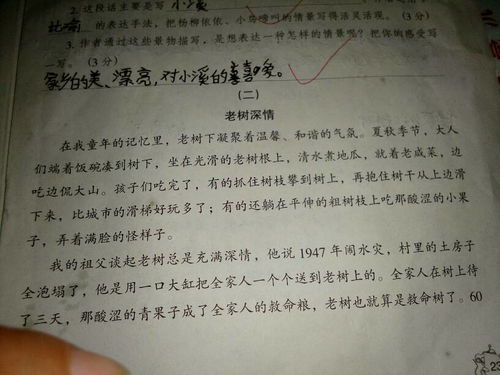 2. 这段话主要是写 小溪
比喻 的表达手法，把杨柳依依、小鸟啼叫的情景写得活灵活现。（3分）
3. 作者通过这些景物描写，是想表达一种怎样的情景呢？把你的感受写
一写。（3分）
家乡的美、漂亮，对小溪的喜喜爱。
（二）
老树深情
在我童年的记忆里，老树下凝聚着温馨、和谐的气氛。夏秋季节，大人
们端着饭碗凑到树下，坐在光滑的老树根上，清水煮地瓜，就着老咸菜，边
吃边侃大山。孩子们吃完了，有的抓住树枝攀到树上，再抱住树干从上边滑
下来，比城市的滑梯好玩多了；有的还躺在平伸的粗树枝上吃那酸涩的小果
子，弄着满脸的怪样子。
我的祖父谈起老树总是充满深情，他说1947年闹水灾，村里的土房子
全泡塌了，他是用一口大缸把全家人一个个送到老树上的。全家人在树上待
了三天，那酸涩的青果子成了全家人的救命粮，老树也就算是救命树了。60
23